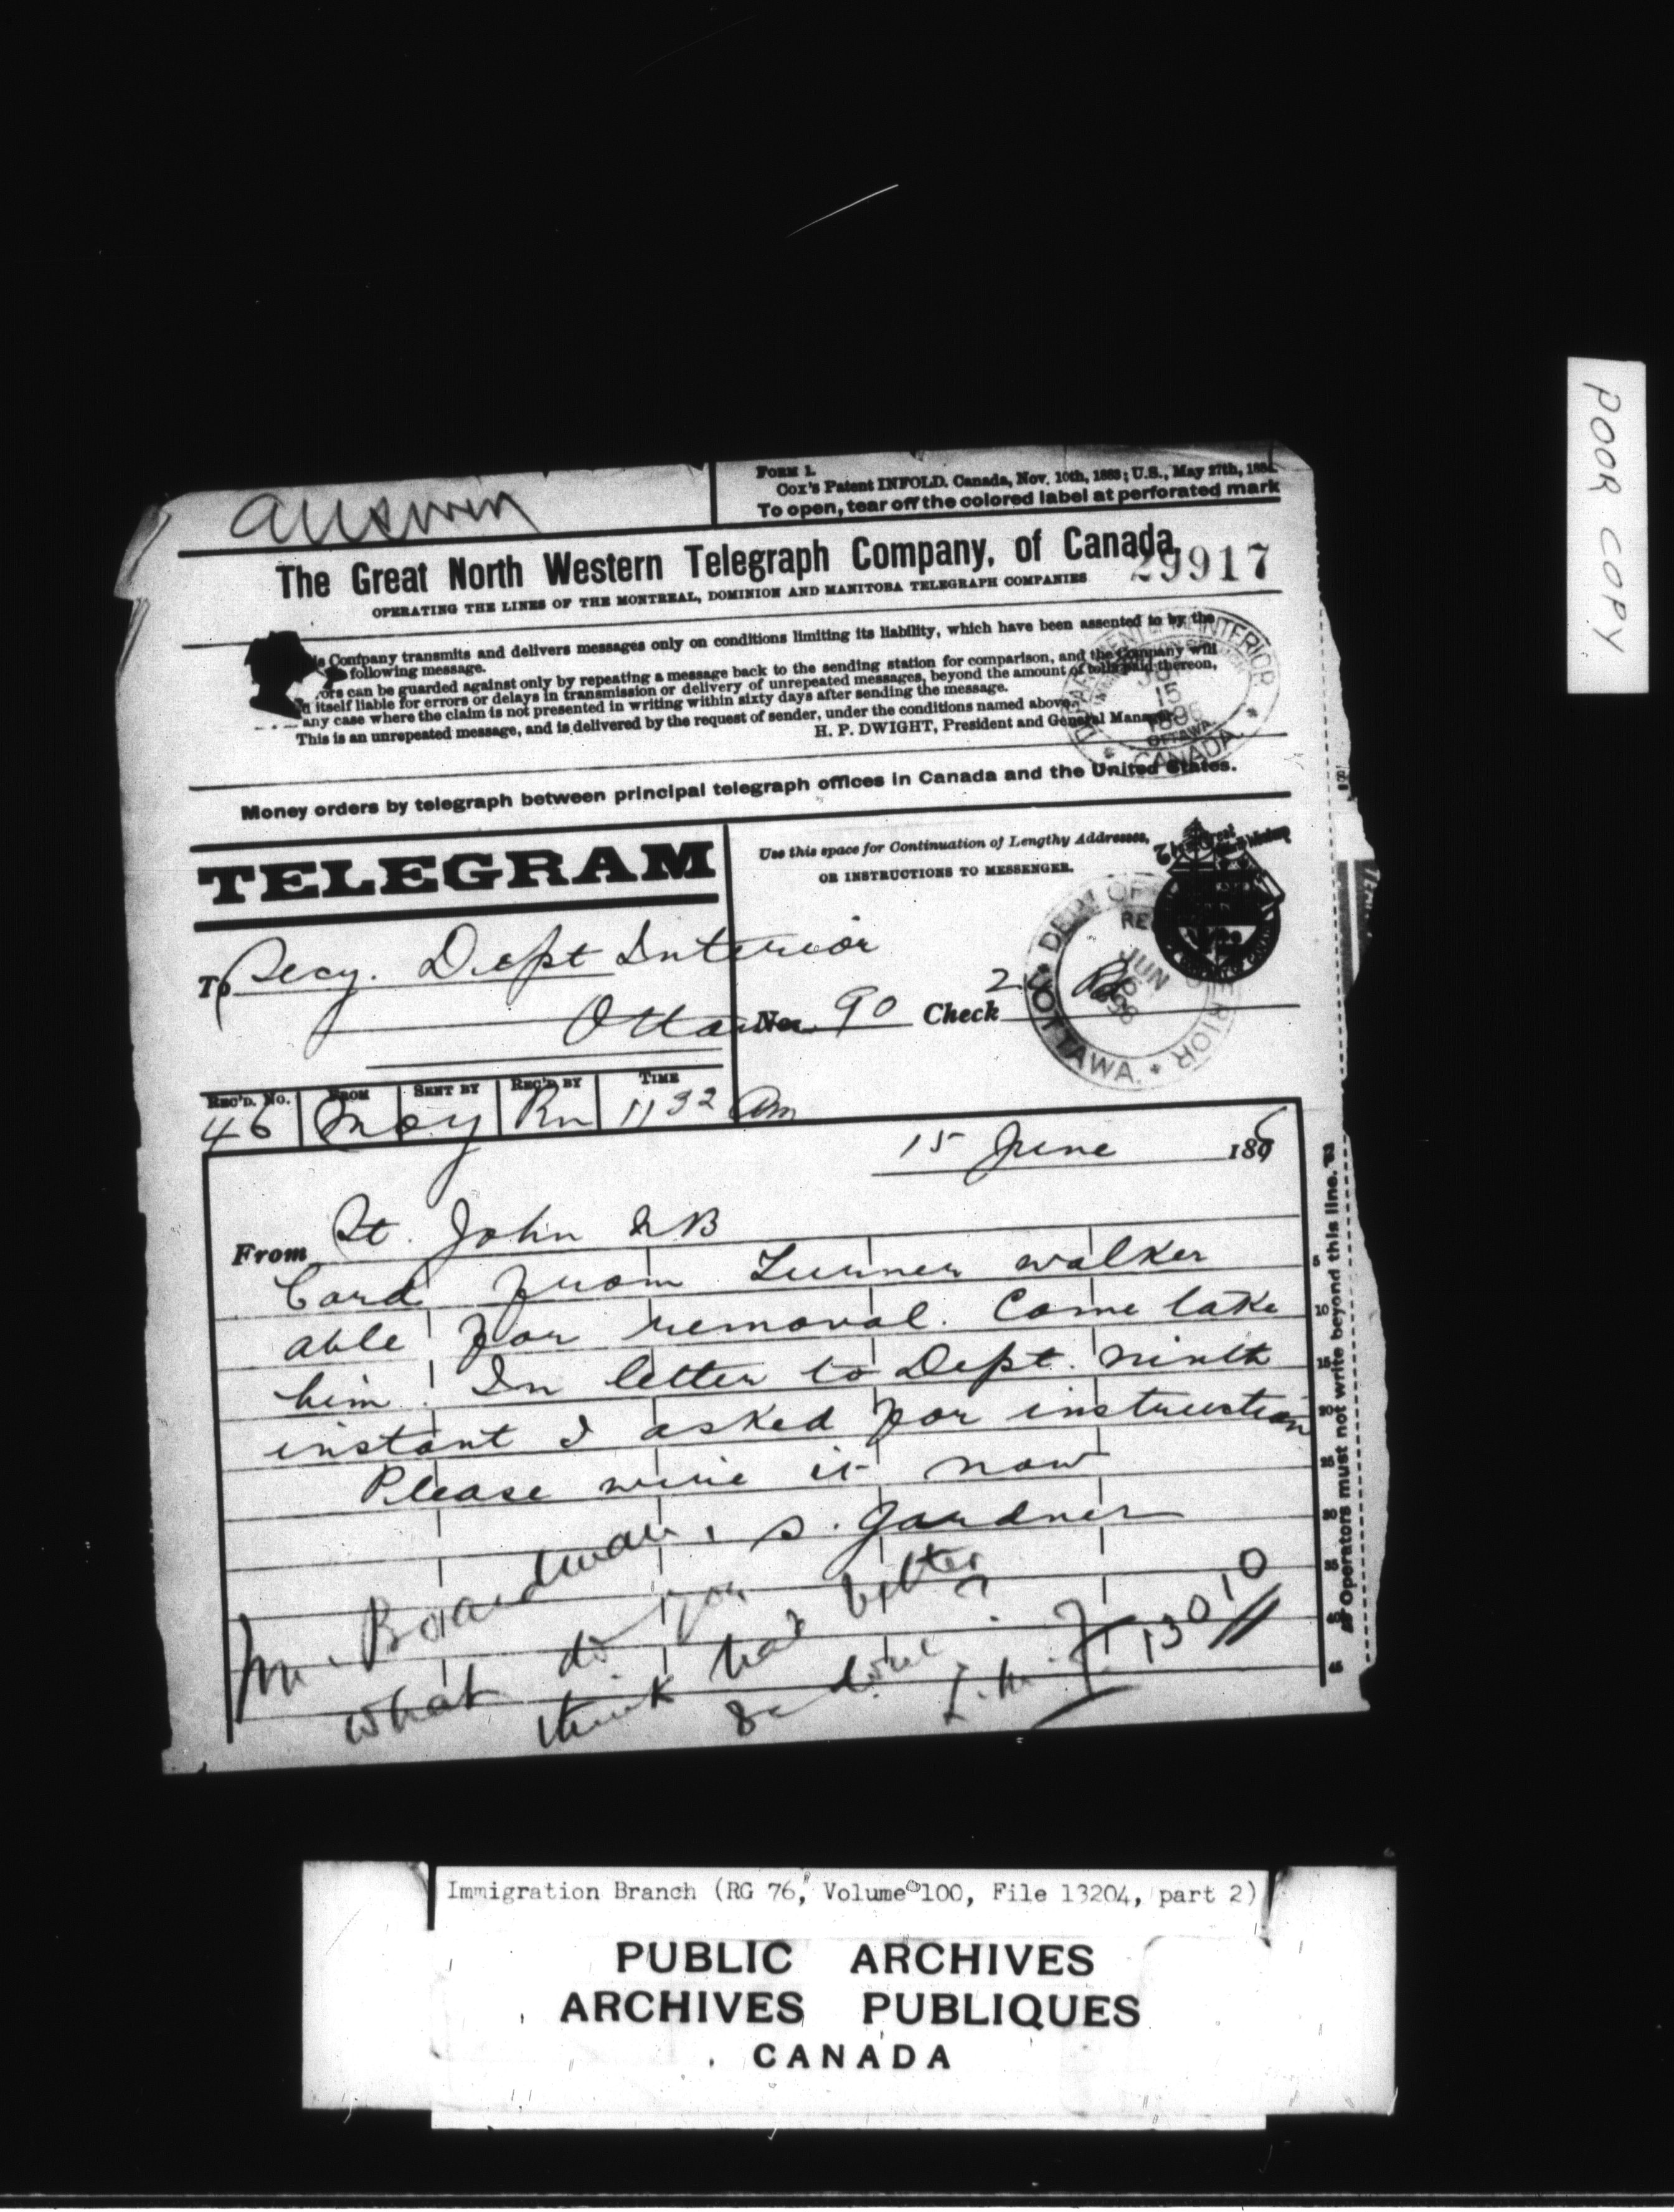 POOR COPY
answer
FORM 1.
Cox's Patent INFOLD. Canada, Nov. 10th, 1883; U.S., May 27th, 1884.
To open, tear off the colored label at perforated mark
The Great North Western Telegraph Company, of Canada
29917
OPERATING THE LINES OF THE MONTREAL, DOMINION AND MANITOBA TELEGRAPH COMPANIES
Company transmits and delivers messages only on conditions limiting its liability, which have been assented to by the
following message.
ors can be guarded against only by repeating a message back to the sending station for comparison, and the Company will
itself liable for errors or delays in transmission or delivery of unrepeated messages, beyond the amount of tolls paid thereon,
any case where the claim is not presented in writing within sixty days after sending the message.
This is an unrepeated message, and is delivered by the request of sender, under the conditions named above.
H. P. DWIGHT, President and General Manager.
INTERIOR
15
1896
OTTAWA
CANADA
Money orders by telegraph between principal telegraph offices in Canada and the United States.
TELEGRAM
Use this space for Continuation of Lengthy Addresses,
OR INSTRUCTIONS TO MESSENGER.
To Secy. Dept Interior
Ottawa
No. 90 Check
JUN
OTTAWA
REC'D. No. FROM SENT BY REC'D BY TIME
46 Rn 11 32 am
15 June 1896
From St. John N B
Card from Turner walker
able for removal. Come take
him. In letter to Dept. ninth
instant I asked for instruction
Please wire it now
S. Gardner
Mr. Boardman,
What do you
think had better
be done?
13010
Operators must not write beyond this line.
5
10
15
20
25
30
35
40
45
Immigration Branch (RG 76, Volume 100, File 13204, part 2)
PUBLIC ARCHIVES
ARCHIVES PUBLIQUES
CANADA